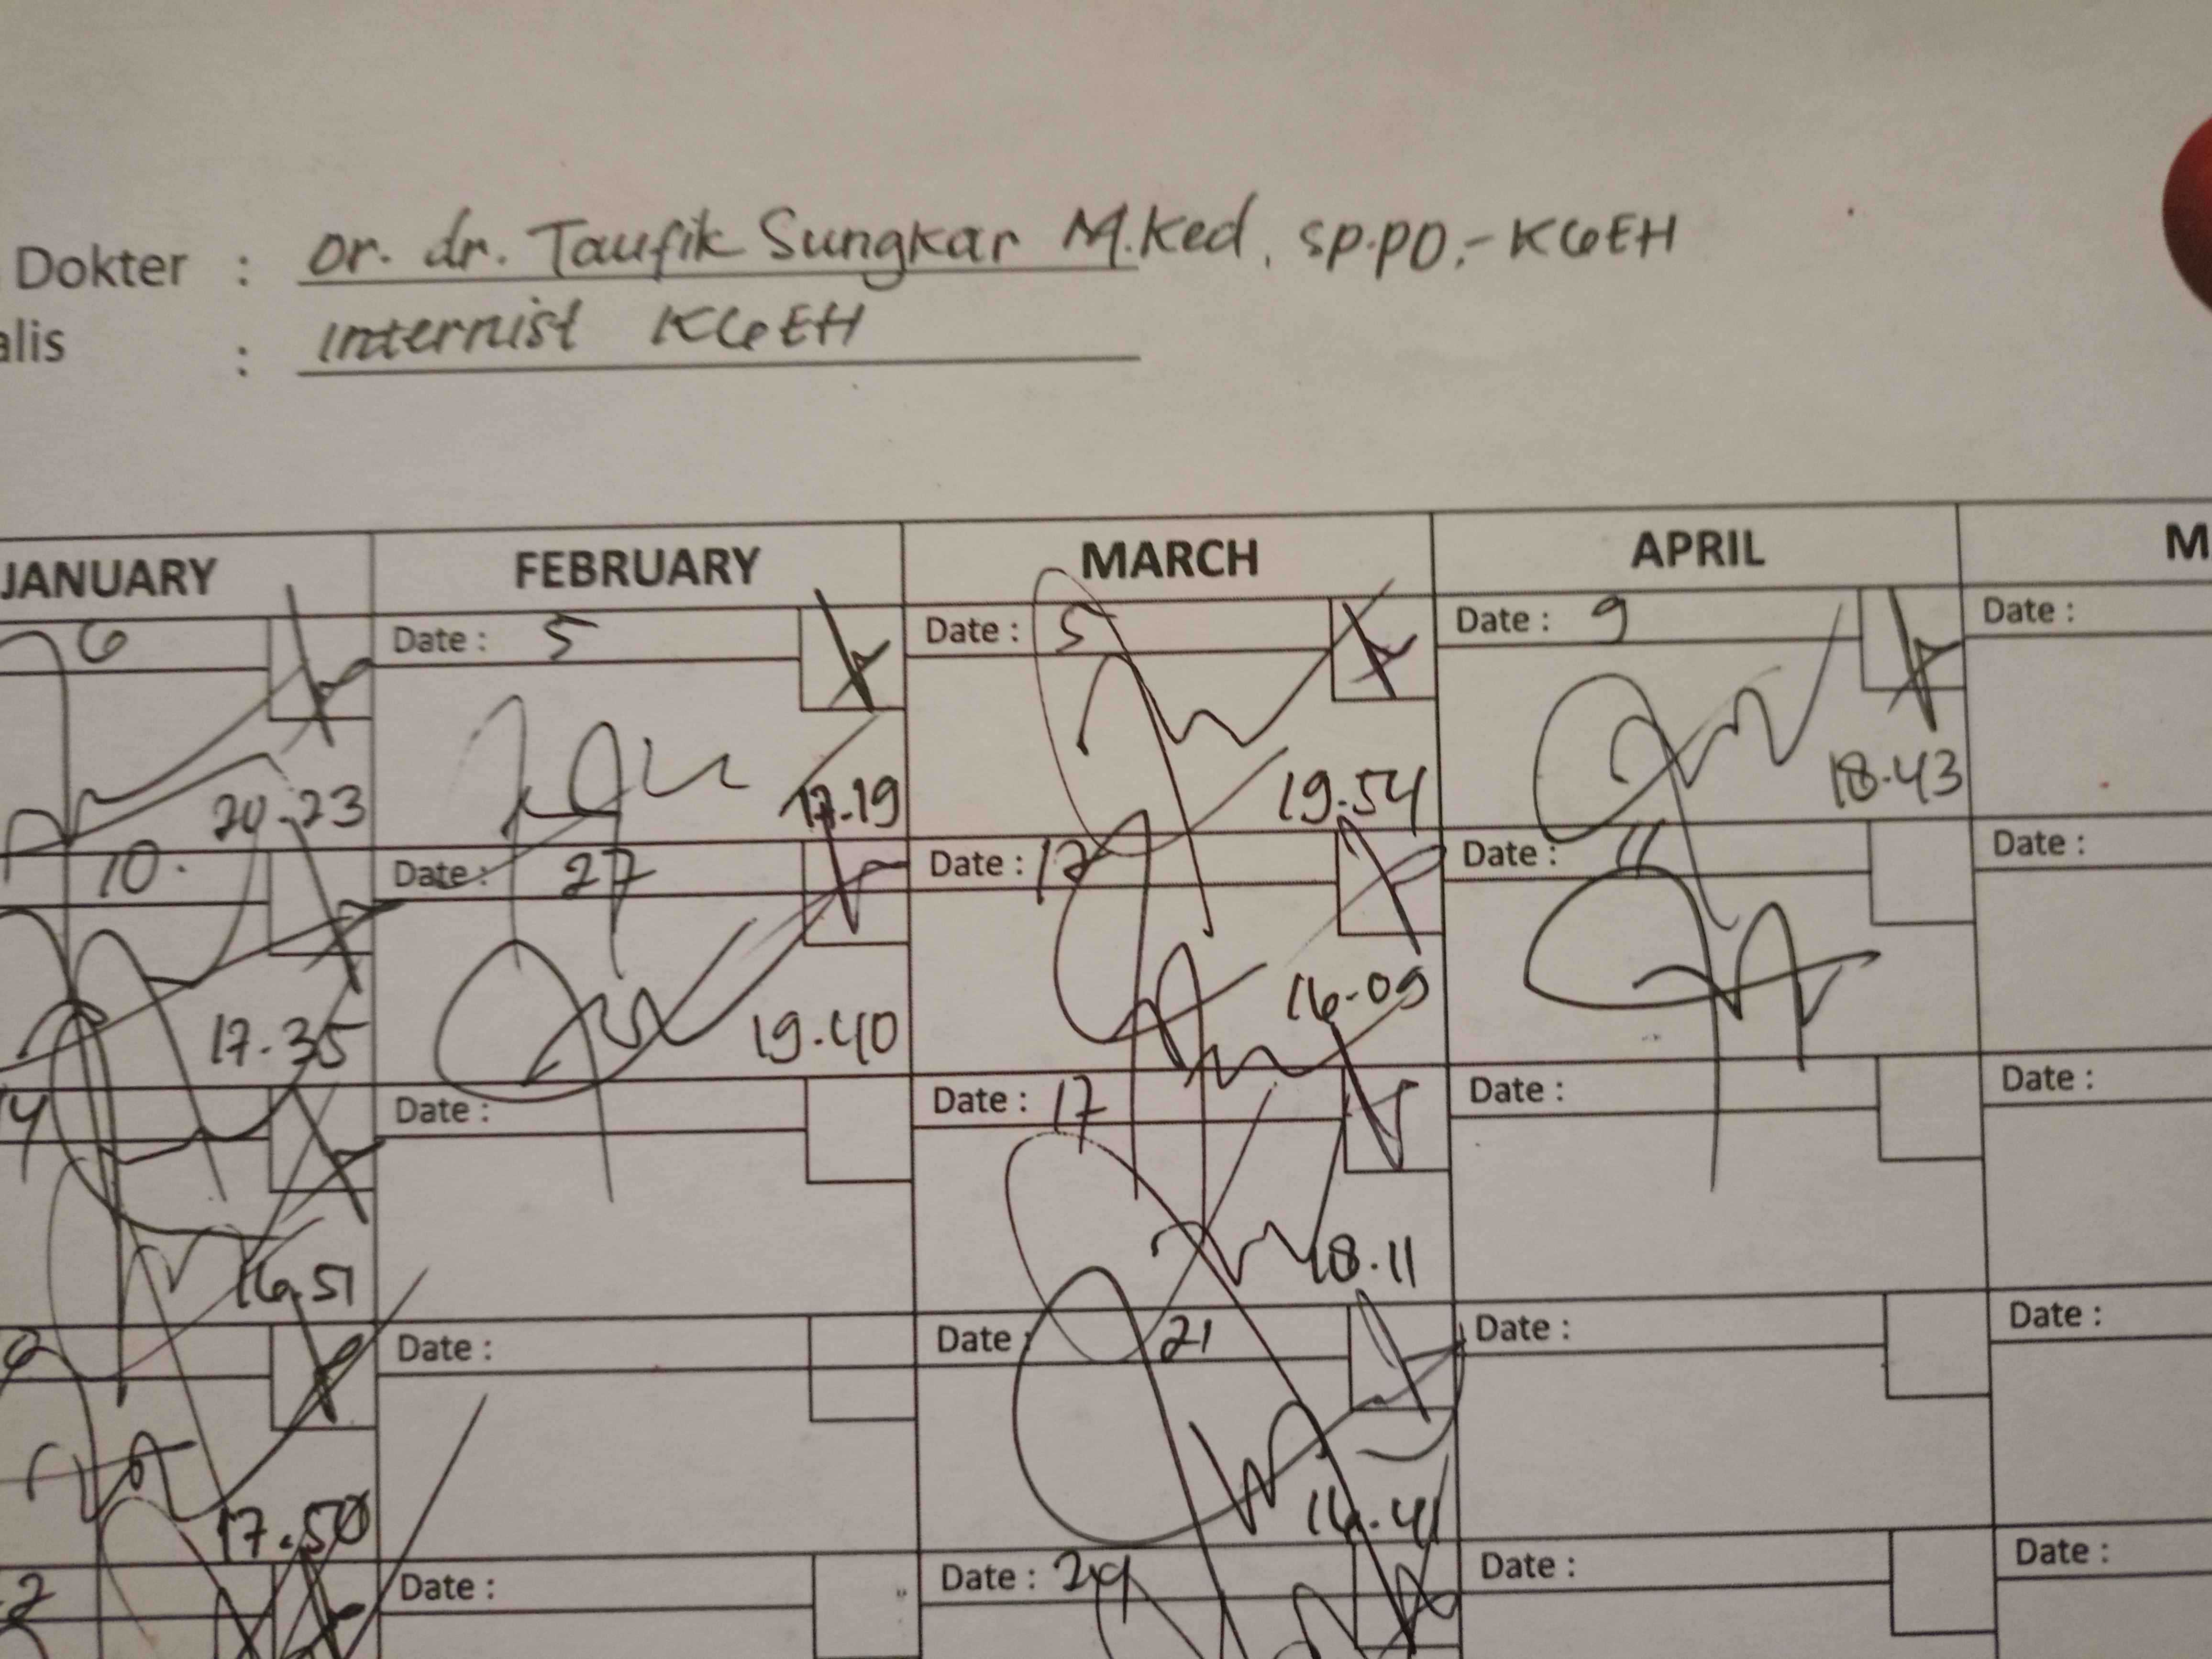 Dokter : Dr. dr. Taufik Sungkar M.Ked, Sp.PD,- KGEH
alis : Internist KGEH
JANUARY FEBRUARY MARCH APRIL M
6 Date : 5 Date : 5 Date : 9 Date :
20.23 17.19 19.54 18.43
10. Date : 27 Date : 12 Date : 11 Date :
17.35 19.40 16.09
14 Date : Date : 17 Date : Date :
16.51 18.11
Date : Date : 21 Date : Date :
17.50 16.41
2 Date : Date : 29 Date : Date :